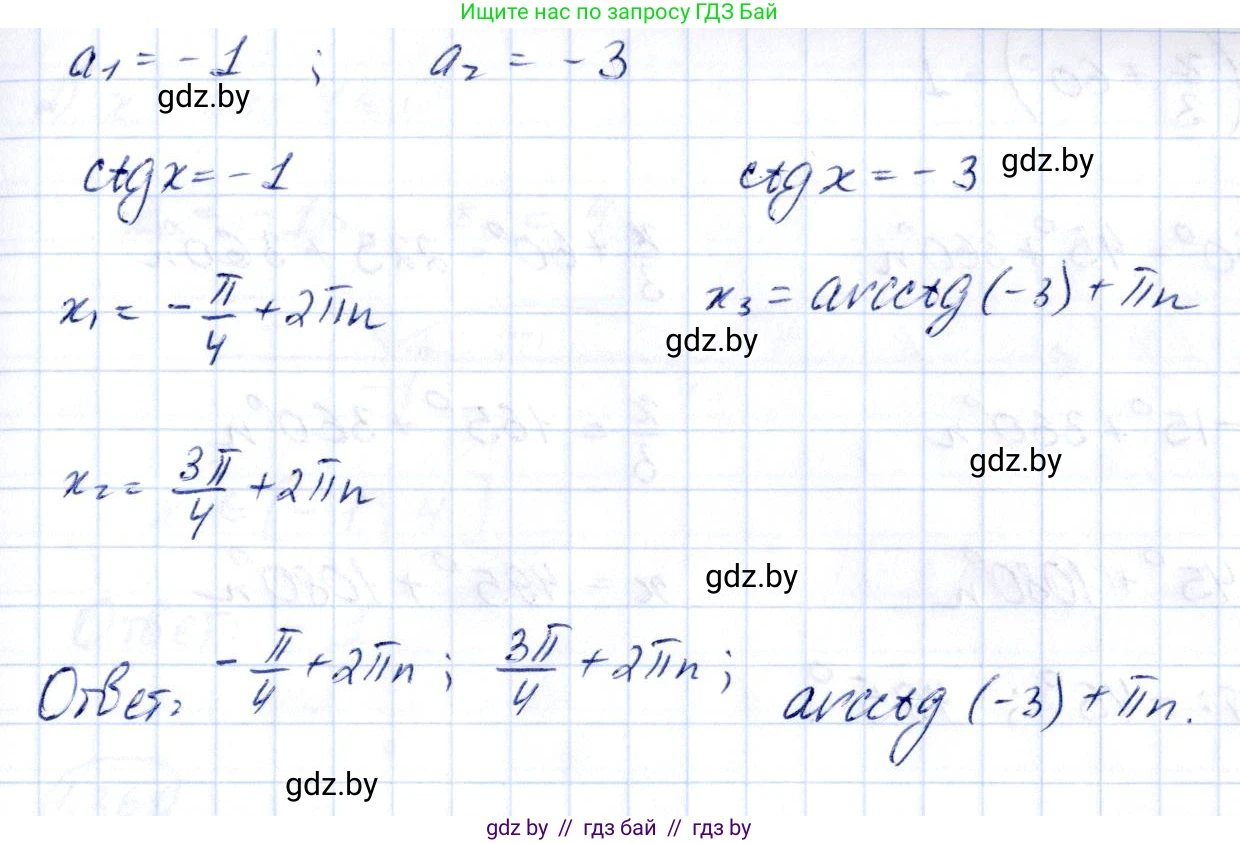 Ищите нас по запросу ГДЗ Бай
a₁ = - 1 ; a₂ = - 3
gdz.by
ctg x = - 1 ctg x = - 3 gdz.by
x₁ = - π/4 + 2πn x₃ = arcctg (-3) + πn
gdz.by
x₂ = 3π/4 + 2πn gdz.by
gdz.by
Ответ: - π/4 + 2πn ; 3π/4 + 2πn ; arcctg (-3) + πn.
gdz.by
gdz by // гдз бай // гдз by